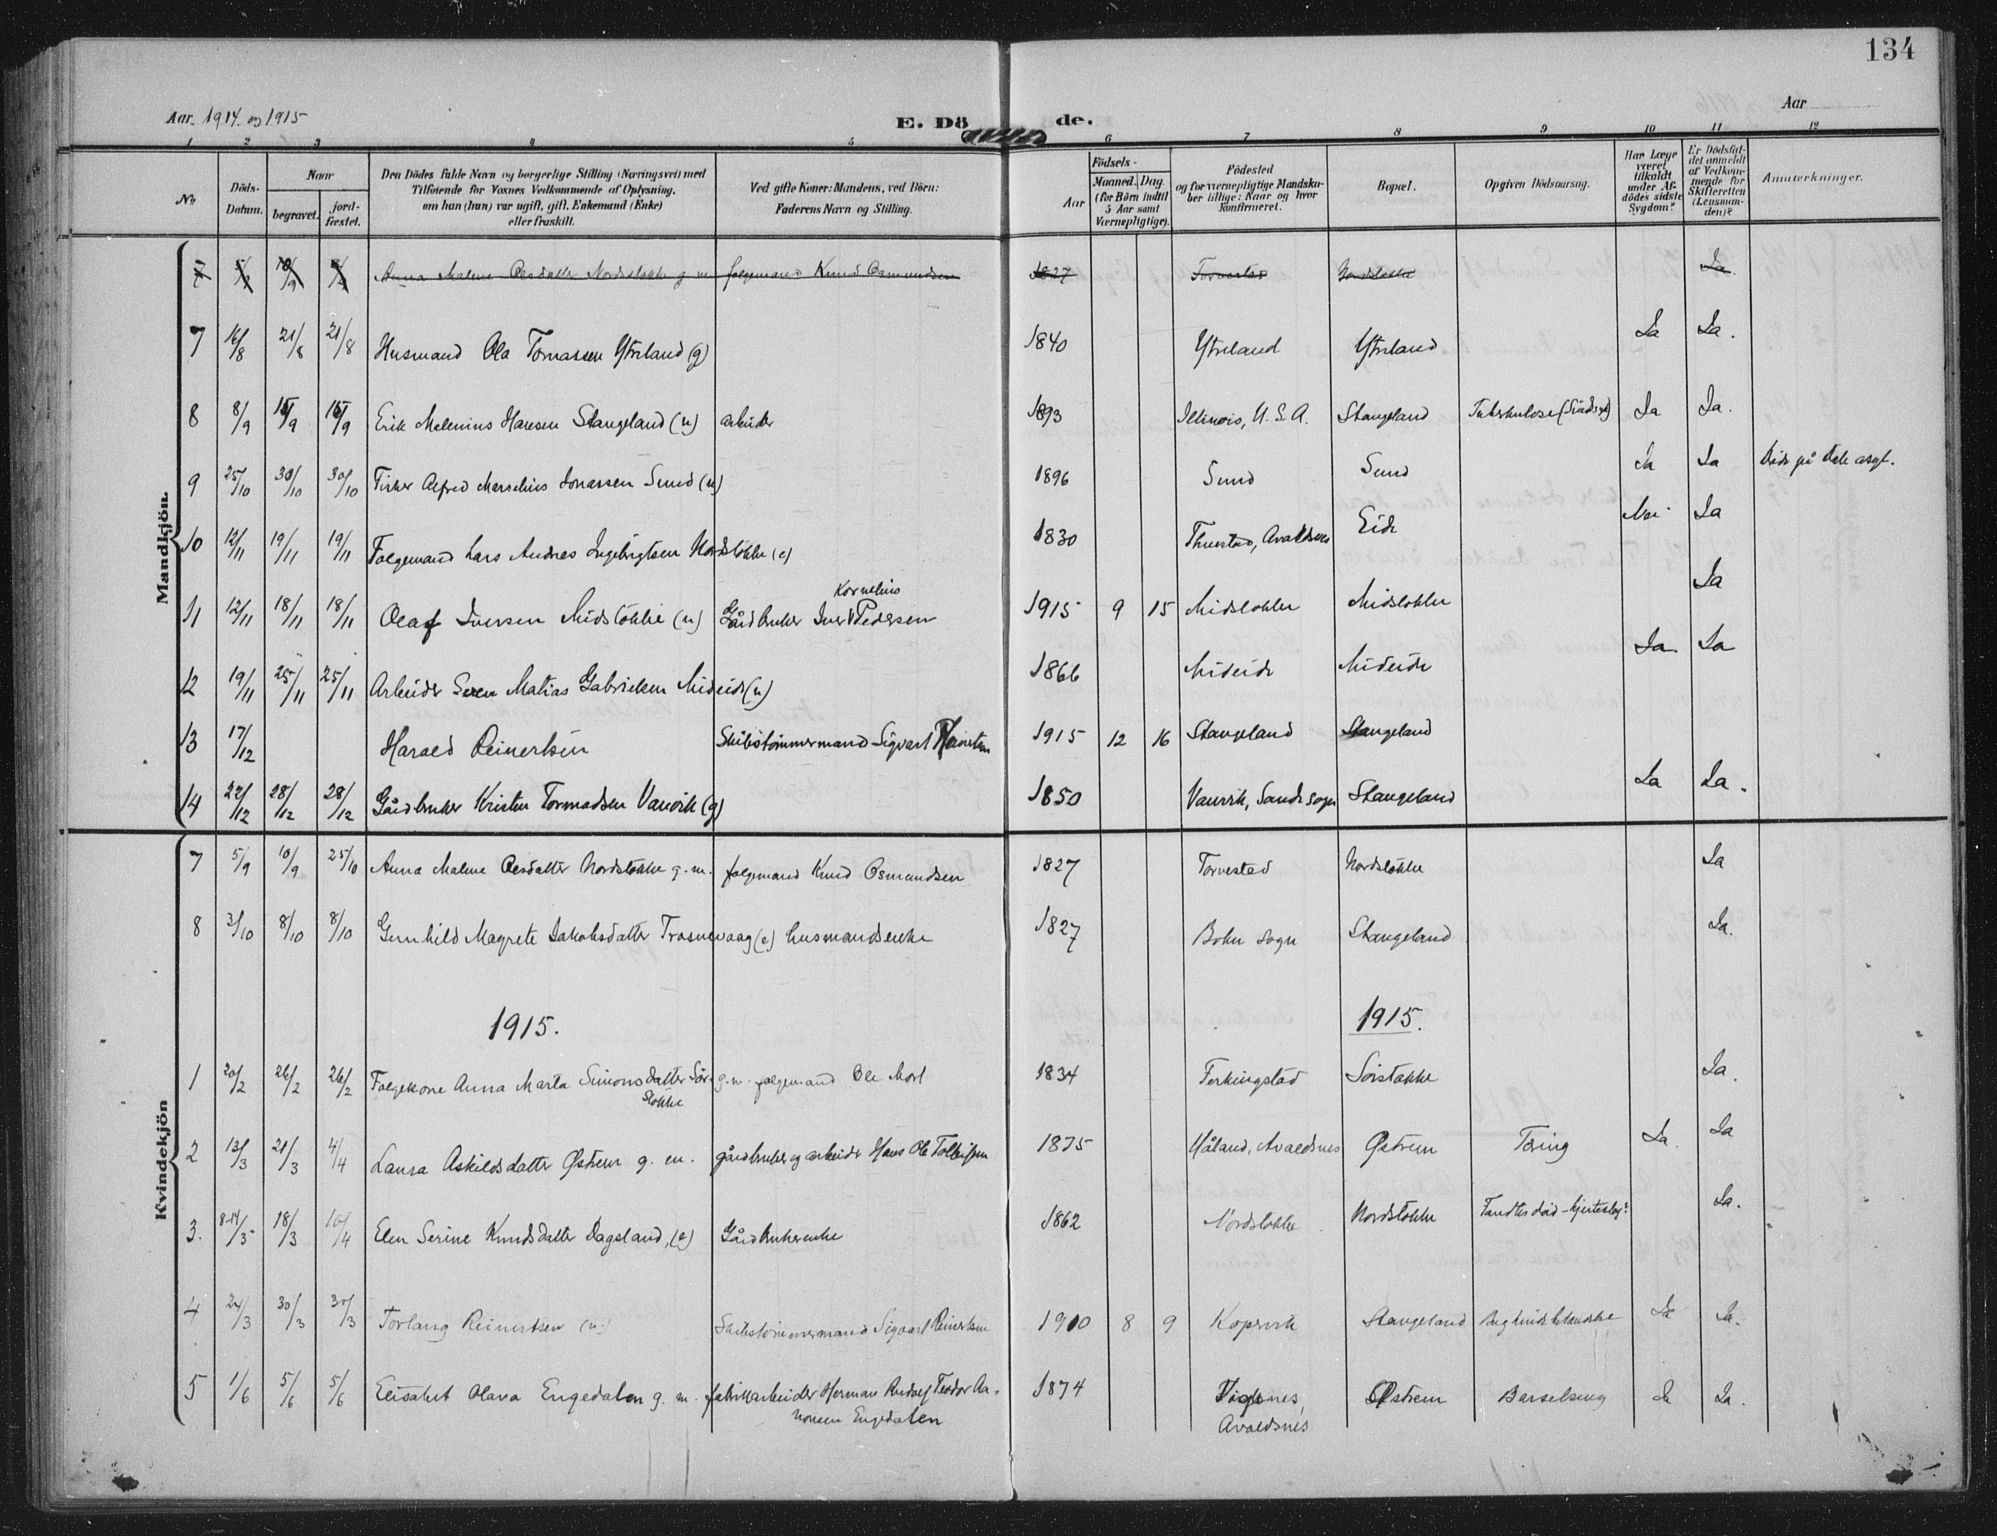 134
Aar. 1914 og 1915
E. Dö de.
Aar
1 2 3 4 5 6 7 8 9 10 11 12
No
Döds-Datum.
Naar
begravet.
jord-fæstet.
Den Dödes fulde Navn og borgerlige Stilling (Næringsvei) med
Tilföiende for Voxnes Vedkommende af Oplysning,
om han (hun) var ugift, gift, Enkemand (Enke)
eller fraskilt.
Ved gifte Koner: Mandens, ved Börn:
Faderens Navn og Stilling.
Födsels-
Aar
Maaned. Dag.
(for Börn indtil
5 Aar samt
Værnepligtige).
Födested
og for værnepligtige Mandska-
ber tillige: Naar og hvor
konfirmeret.
Bopæl.
Opgiven Dödsaarsag.
Har Læge
været
tilkaldt
under Af-
dödes sidste
Sygdom?
Er Dödsfal-
det anmeldt
af Vedkom-
mende for
Skifteretten
(Lensman-
den)?
Anmærkninger.
Mandkjön.
Anna Malene Olesdatter Nordstokke g. m. folgemand Knud Osmundsen 1827 Torvestad Nordstokke Ja.
7 16/8 21/8 21/8 Husmand Ola Tomassen Ytreland (g) 1840 Ytreland Ytreland Ja Ja.
8 8/9 15/9 15/9 Erik Melenius Hansen Stangeland (u) arbeider 1893 Illinois, U.S.A. Stangeland Tuberkulose Ja Ja.
9 25/10 30/10 30/10 Fisker Alfred Marselius Jonassen Sund (u) 1896 Sund Sund Ja Ja Døde på Dale asyl.
10 12/11 19/11 19/11 Folgemand Lars Andreas Ingebrigtsen Nordstokke (e) 1830 Avaldsnes Eide Nei Ja
11 12/11 18/11 18/11 Olaf Iversen Midstokke (u) Gårdbruker Iver Kornelius Pedersen 1915 9 15 Midstokke Midstokke Ja
12 19/11 25/11 25/11 Arbeider Søren Matias Gabrielsen Mideide (u) 1866 Mideide Mideide Ja Ja
13 17/12 Harald Reinertsen Skibstømmermand Sigvart Reinertsen 1915 12 16 Stangeland Stangeland
14 22/12 28/12 28/12 Gårdbruker Kristen Tormodsen Vanvik (g) 1850 Vanvik, Sands sogn Stangeland Ja Ja.
Kvindekjön
7 5/9 10/9 25/10 Anna Malene Olesdatter Nordstokke g. m. folgemand Knud Osmundsen 1827 Torvestad Nordstokke Ja
8 3/10 8/10 8/10 Gunhild Magrete Jakobsdatter Trosnevaag (e) husmandsenke 1827 Bokn sogn Stangeland Ja.
1915.
1915.
1 20/2 26/2 26/2 Folgekone Anna Marta Simonsdatter Sør-
stokke g. m. folgemand Ole 1834 Ferkingstad Sørstokke Ja.
2 13/3 21/3 4/4 Laura Askildsdatter Østrem g. m. gårdbruker og arbeider Hans Ole 1875 Håland, Avaldsnes Østrem Tæring Ja. Ja
3. 8-14/3 18/3 10/4 Elen Serine Knudsdatter Dagsland, (e) Gårdbrukerenke 1862 Nordstokke Nordstokke Fandtes død - hjerteslag? Ja.
4 24/3 30/3 30/3 Torlaug Reinertsen (u) Skibstømmermand Sigvart Reinertsen 1910 8 9 Kopervik Stangeland Ja Ja.
5 1/6 5/6 5/6 Elisabet Olava Engedalen g. m. fabrikarbeider Herman Andreas Teodor Aa-
nonsen Engedalen 1874 Vigsnes,
Avaldsnes Østrem Barselseng Ja Ja.